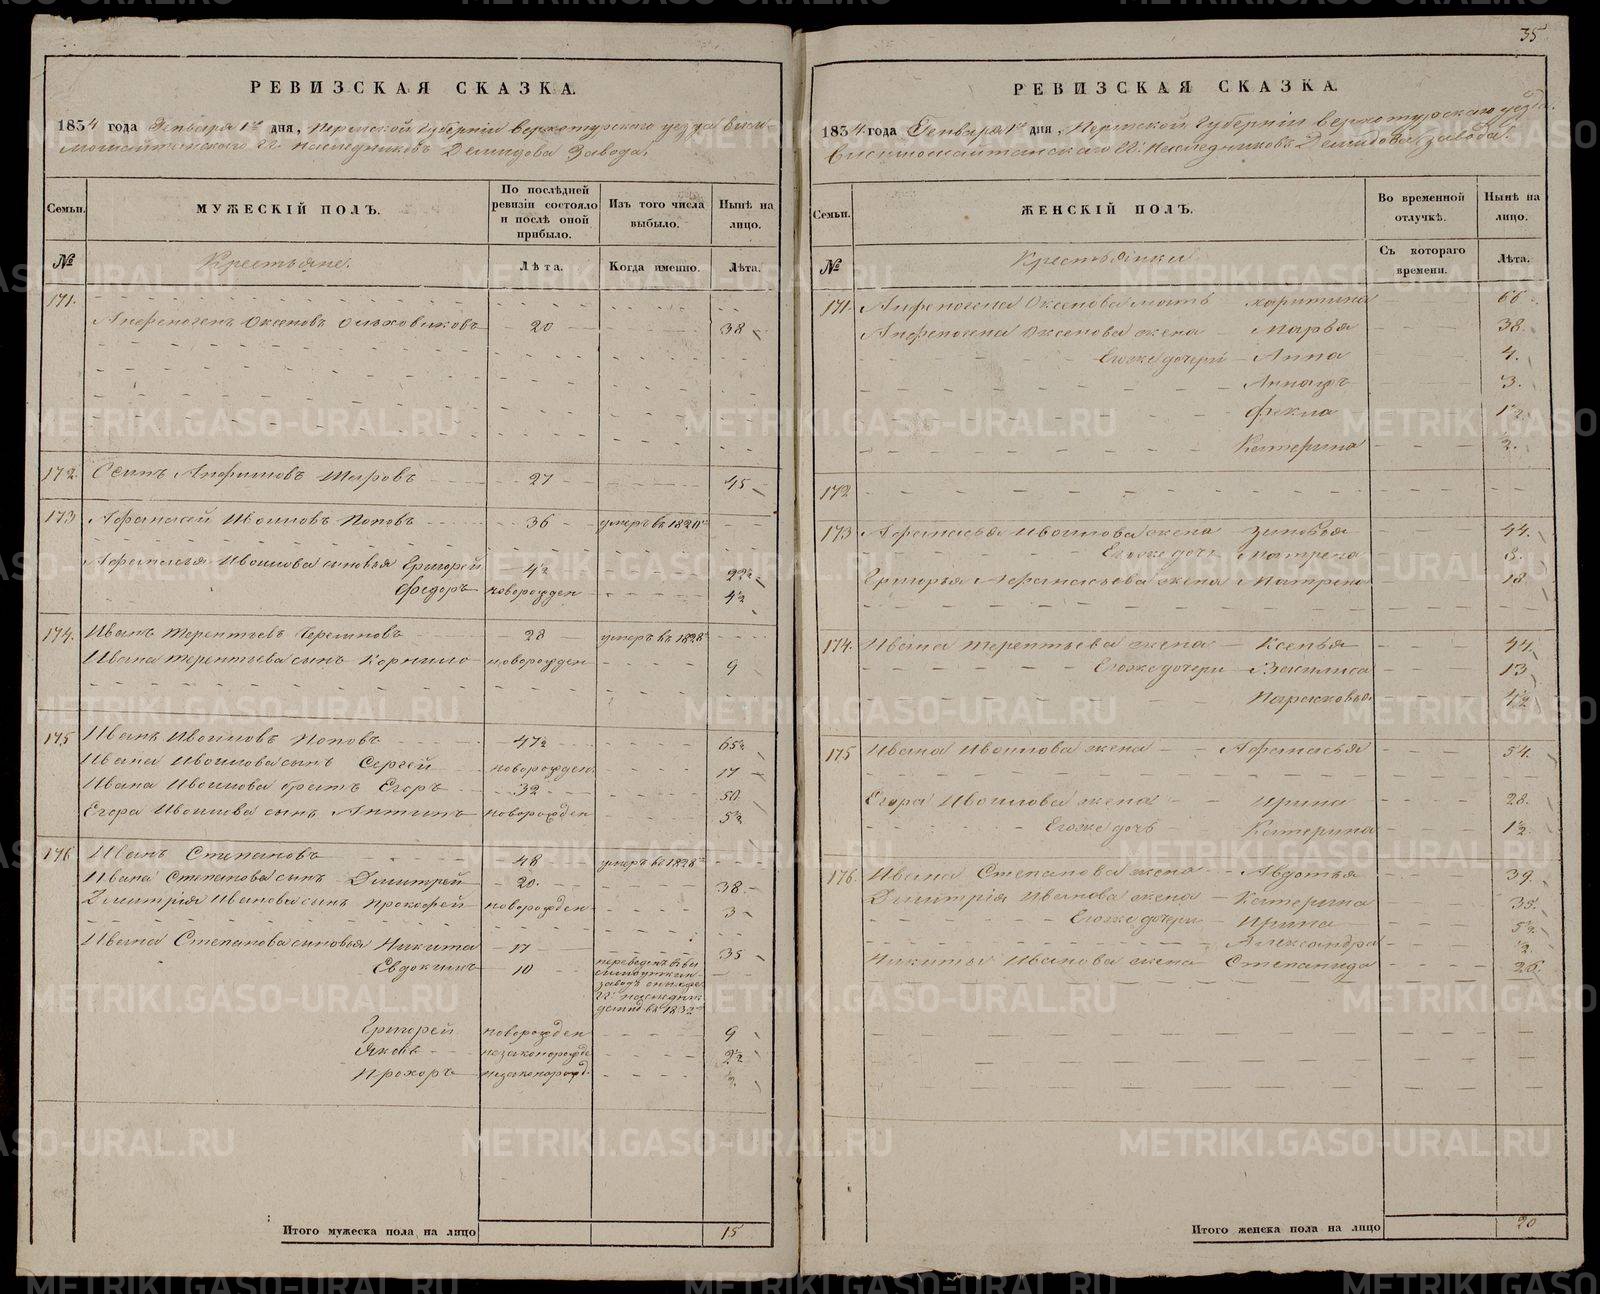 35
РЕВИЗСКАЯ СКАЗКА.
1834 года Генваря 1го дня, Пермской Губернiи Верхотурского уезда Виси-
мошайтанского Гг. Наследниковъ Демидова Завода.
Семьи.
МУЖЕСКІЙ ПОЛЪ.
По послѣдней ревизіи состояло и послѣ оной прибыло.
Изъ того числа выбыло.
Нынѣ на лицо.
№
Крестьяне.
Лѣта.
Когда именно.
Лѣта.
171.
Анфеногенъ Оксеновъ Ольховиковъ 20 38
172. Осипъ Анфимовъ Шаровъ 27 45
173 Афанасей Ивоиловъ Поповъ 36 умеръ въ 1820
Афанасья Ивоилова сыновья Григорей 4½ 22½
Федоръ новорожден 4½
174. Иванъ Терентьевъ 28 умеръ въ 1828
Ивана Терентьева сынъ Корнило новорожден 9
175 Иванъ Ивоиловъ Поповъ 47½ 65½
Ивана Ивоилова сынъ Сергей новорожден. 17
Ивана Ивоилова братъ Егоръ 32 50
Егора Ивоилова сынъ Антипъ новорожден 5½
176 Иванъ Степановъ 48 умеръ въ 1828
Ивана Степанова сынъ Дмитрей 20. 38
Дмитрія Иванова сынъ Прокофей новорожден 3
Ивана Степанова сыновья Никита 17 35
Евдокимъ 10 переведенъ въ Ви
симоуткин
заводъ
Гг. наследник
въ 1832
Григорей новорожден 9
Яковъ незаконорожде 2½
Прохоръ незаконорожд. ½
Итого мужеска пола на лицо 15
РЕВИЗСКАЯ СКАЗКА.
1834. года Генваря 1го дня, Пермской Губернiи Верхотурского уезда.
Висимошайтанскаго Гг. Наследниковъ Демидова завода.
Семьи.
ЖЕНСКІЙ ПОЛЪ.
Во временной отлучкѣ.
Нынѣ на лицо.
№
Крестьянки
Съ котораго времени.
Лѣта.
171. Анфеногена Оксенова мать Харитина 66
Анфеногена Оксенова жена Марья 38.
Егоже дочери Анна 4.
3.
Фекла 1½
Катерина ½.
172
173 Афанасья Ивоилова жена Зиновья 44.
Егоже дочь Матрена 8.
Григорья Афанасьева жена Матрена 18.
174. Ивана Терентьева жена Ксенья 44.
Егоже дочери 13
Парасковья 4½
175 Ивана Ивоилова жена Афанасья 54.
Егора Ивоилова жена Ирина 28.
Егоже дочь Катерина 1½.
176. Ивана Степанова жена Авдотья 39.
Дмитрія Иванова жена Катерина 35.
Егоже дочери Ирина 5½
Александра ½
Никиты Иванова жена Степанида 26.
Итого женска пола на лицо 20
METRIKI.GASO-URAL.RU